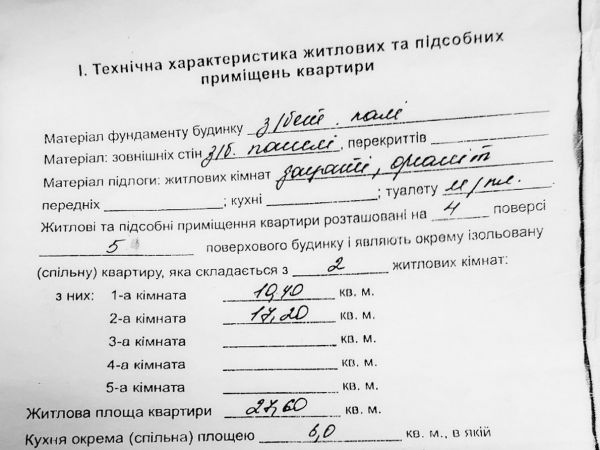 І. Технічна характеристика житлових та підсобних
приміщень квартири
Матеріал фундаменту будинку з/бет. палі
Матеріал: зовнішніх стін з/б. панелі, перекриттів
Матеріал підлоги: житлових кімнат
передніх ; кухні ; туалету м/пл.
Житлові та підсобні приміщення квартири розташовані на 4 поверсі
5 поверхового будинку і являють окрему ізольовану
(спільну) квартиру, яка складається з 2 житлових кімнат:
з них: 1-а кімната 10,40 кв. м.
2-а кімната 17,20 кв. м.
3-а кімната кв. м.
4-а кімната кв. м.
5-а кімната кв. м.
Житлова площа квартири 27,60 кв. м.
Кухня окрема (спільна) площею 6,0 кв. м., в якій